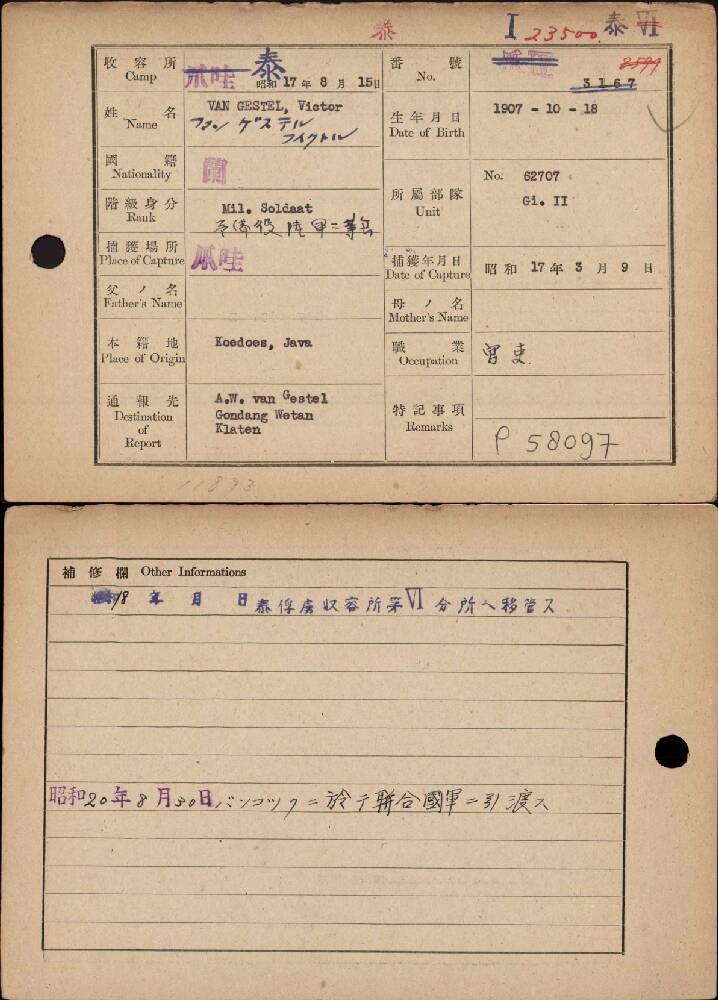 泰
I 23500. 泰 VI
收容所 Camp 爪哇 泰 昭和 17 年 8 月 15日
番號 No. 爪哇 3167 8599
姓名 Name VAN GESTEL, Victor
フアン ゲステル
フイクトル
生年月日 Date of Birth 1907 - 10 - 18
國籍 Nationality 蘭
階級身分 Rank Mil. Soldaat
所屬部隊 Unit No. 62707
Gi. II
捕獲場所 Place of Capture 爪哇
捕獲年月日 Date of Capture 昭和 17 年 3 月 9 日
父ノ名 Father's Name
母ノ名 Mother's Name
本籍地 Place of Origin Koedoes, Java
職業 Occupation
通報先 Destination of Report A.W. van Gestel
Gondang Wetan
Klaten
特記事項 Remarks
P 58097
11893
補修欄 Other Informations
昭和18年 月 日 泰俘虜収容所第VI分所ヘ移管ス
昭和20年8月30日バンコックニ於テ聯合國軍ニ引渡ス